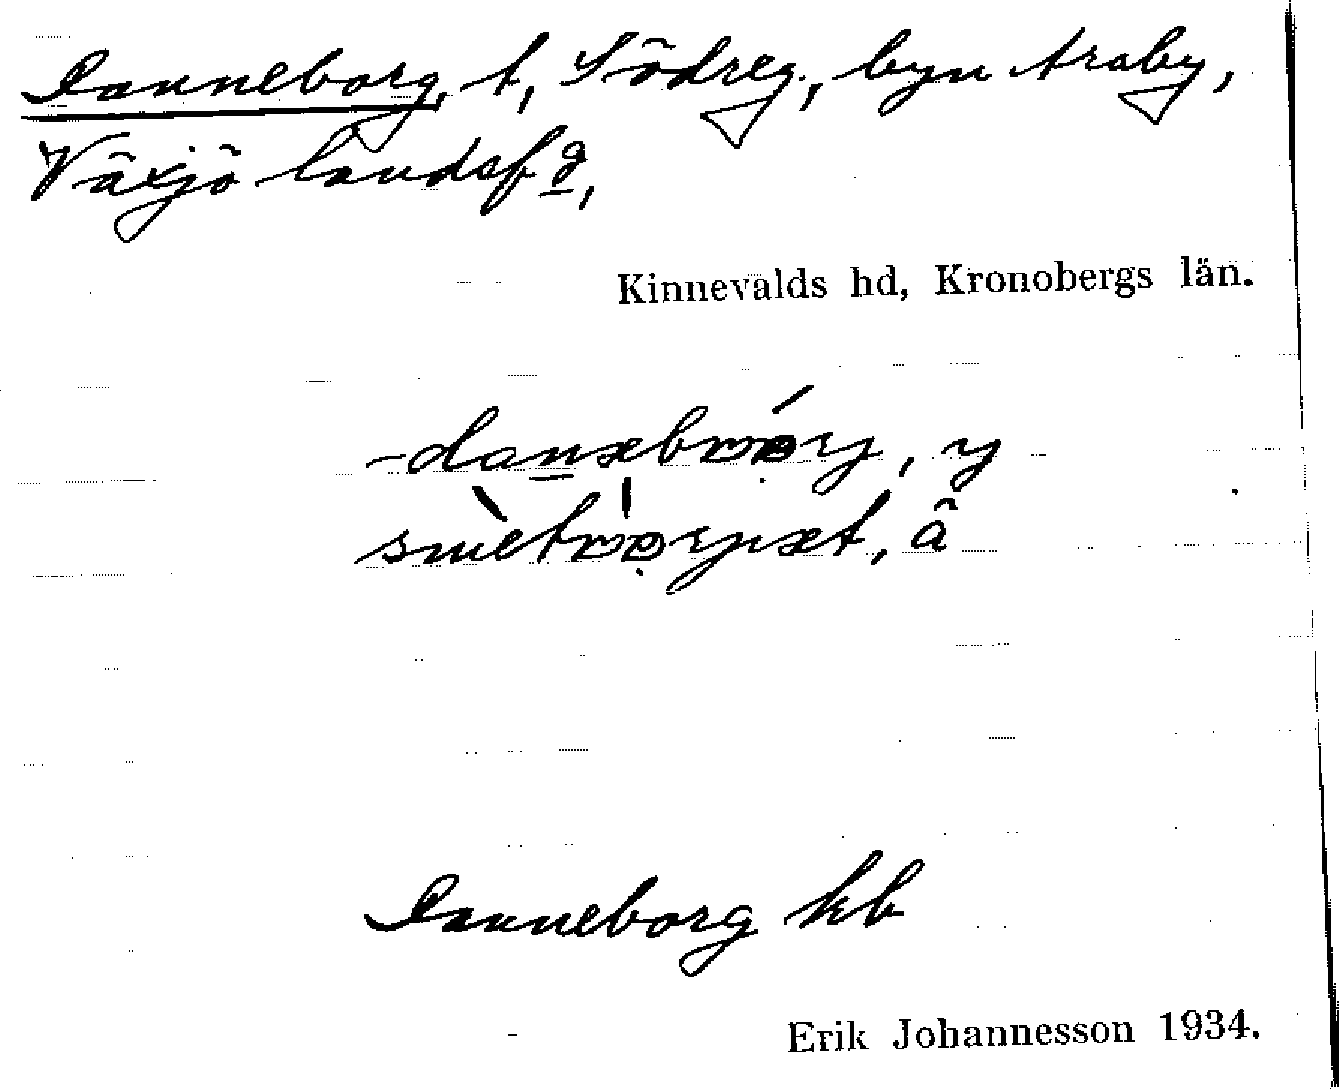 Danneborg, t, Södreg., byn Araby,
Växjö landsfg,
Kinnevalds hd, Kronobergs län.
y
, â
Danneborg kb
Erik Johannesson 1934.